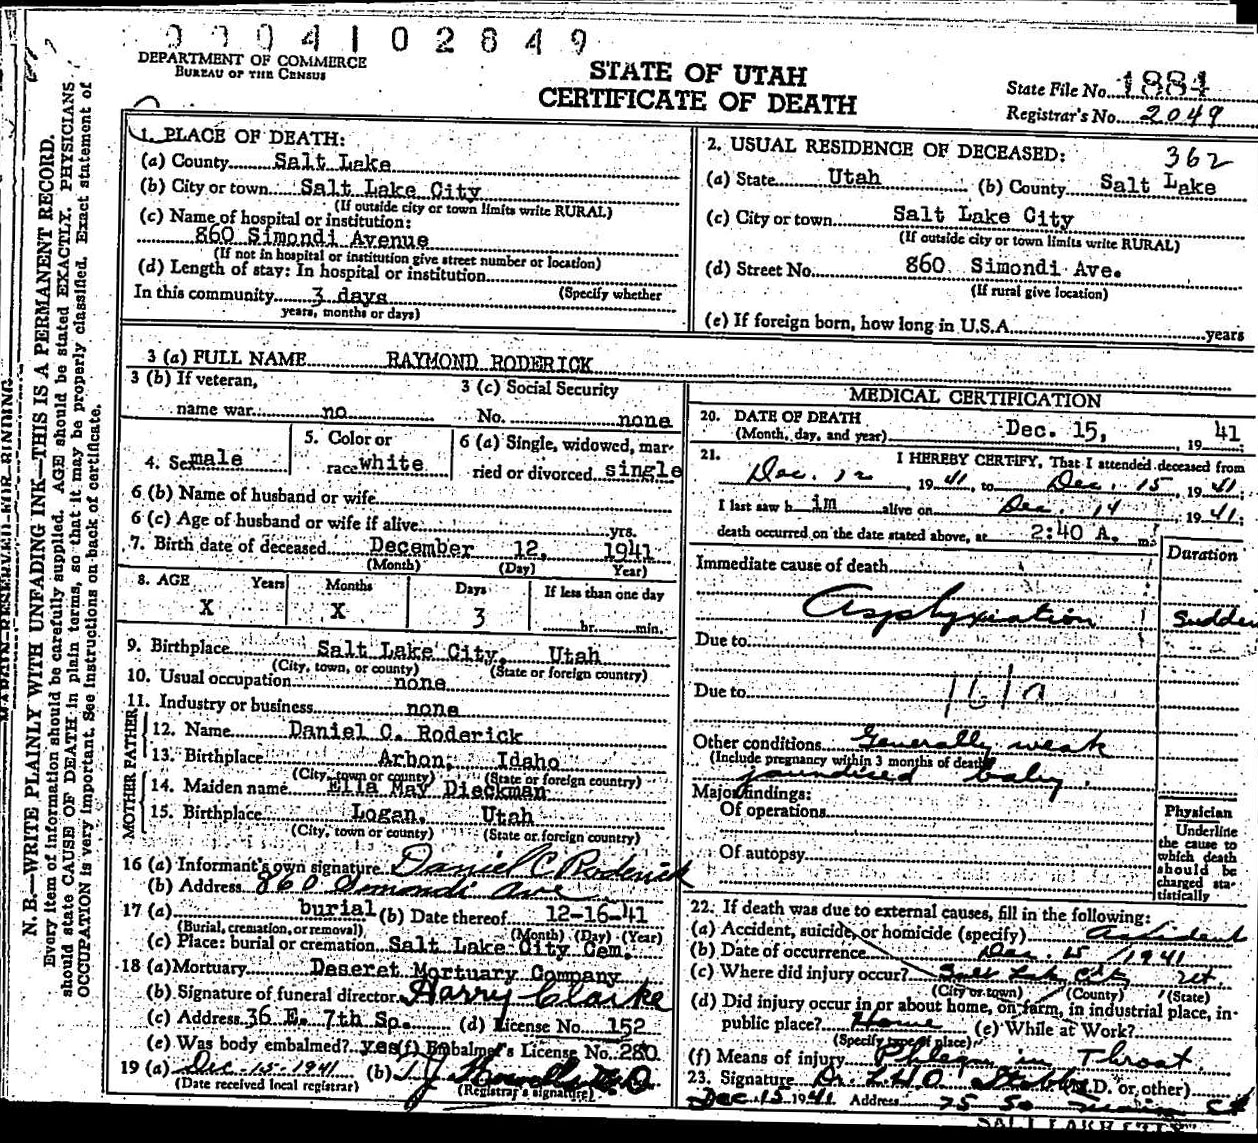 0004102849
DEPARTMENT OF COMMERCE
BUREAU OF THE CENSUS
STATE OF UTAH
CERTIFICATE OF DEATH
State File No. 1884
Registrar's No. 2049
N. B.—WRITE PLAINLY WITH UNFADING INK—THIS IS A PERMANENT RECORD.
Every item of information should be carefully supplied. AGE should be stated EXACTLY. PHYSICIANS
should state CAUSE OF DEATH in plain terms, so that it may be properly classified. Exact statement of
OCCUPATION is very important. See instructions on back of certificate.
1. PLACE OF DEATH:
(a) County Salt Lake
(b) City or town Salt Lake City
(If outside city or town limits write RURAL)
(c) Name of hospital or institution:
860 Simondi Avenue
(If not in hospital or institution give street number or location)
(d) Length of stay: In hospital or institution
(Specify whether
In this community 3 days
years, months or days)
2. USUAL RESIDENCE OF DECEASED: 362
(a) State Utah (b) County Salt Lake
(c) City or town Salt Lake City
(If outside city or town limits write RURAL)
(d) Street No. 860 Simondi Ave.
(If rural give location)
(e) If foreign born, how long in U.S.A. years
3 (a) FULL NAME RAYMOND RODERICK
3 (b) If veteran,
name war no
3 (c) Social Security
No. none
4. Sex male
5. Color or
race white
6 (a) Single, widowed, mar-
ried or divorced single
6 (b) Name of husband or wife
6 (c) Age of husband or wife if alive yrs.
7. Birth date of deceased December 12, 1941
(Month) (Day) Year)
8. AGE Years Months Days If less than one day
X X 3 hr. min.
9. Birthplace Salt Lake City, Utah
(City, town, or county) (State or foreign country)
10. Usual occupation none
11. Industry or business none
FATHER
12. Name Daniel C. Roderick
13. Birthplace Arbon, Idaho
(City, town or county) (State or foreign country)
MOTHER
14. Maiden name Ella May Dieckman
15. Birthplace Logan, Utah
(City, town or county) (State or foreign country)
16 (a) Informant's own signature Daniel C Roderick
(b) Address 860 Simondi Ave
17 (a) burial (b) Date thereof 12-16-41
(Burial, cremation, or removal) (Month) (Day) (Year)
(c) Place: burial or cremation Salt Lake City Cem.
18 (a) Mortuary Deseret Mortuary Company
(b) Signature of funeral director Harry Clarke
(c) Address 36 E. 7th So. (d) License No. 152
(e) Was body embalmed? yes (f) Embalmer's License No. 280
19 (a) Dec-15-1941 (b) T J
(Date received local registrar) (Registrar's signature)
MEDICAL CERTIFICATION
20. DATE OF DEATH
(Month, day, and year) Dec. 15, 19 41
21. I HEREBY CERTIFY, That I attended deceased from
Dec. 12, 19 41, to Dec. 15, 19 41;
I last saw h im alive on Dec. 14, 19 41;
death occurred on the date stated above, at 2:40 A. m.
Duration
Immediate cause of death
Asphyxiation Sudden
Due to
Due to 161a
Other conditions Generally weak
(Include pregnancy within 3 months of death)
jaundised baby.
Major findings:
Of operations
Of autopsy
Physician
Underline
the cause to
which death
should be
charged sta-
tistically
22. If death was due to external causes, fill in the following:
(a) Accident, suicide, or homicide (specify) accident
(b) Date of occurrence Dec. 15 / 1941
(c) Where did injury occur? Salt Lake City Ut
(City or town) (County) (State)
(d) Did injury occur in or about home, on farm, in industrial place, in
public place? Home (e) While at Work?
(Specify type of place)
(f) Means of injury Phlegm in Throat.
23. Signature Dr. L.H.O. (M.D. or other)
Dec 15 1941 Address 75 So
SALT LAKE CITY